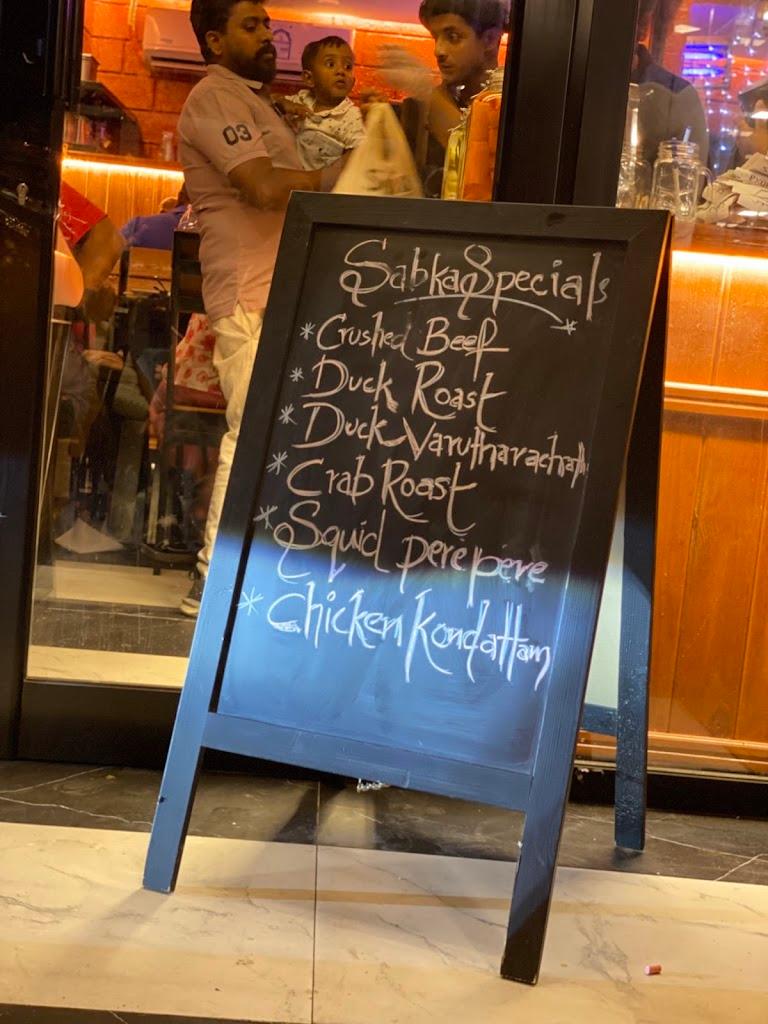 03
Sabka Specials
* Crushed Beef
* Duck Roast
* Duck Varutharachath
* Crab Roast
* Squid pere pere
* Chicken Kondattam